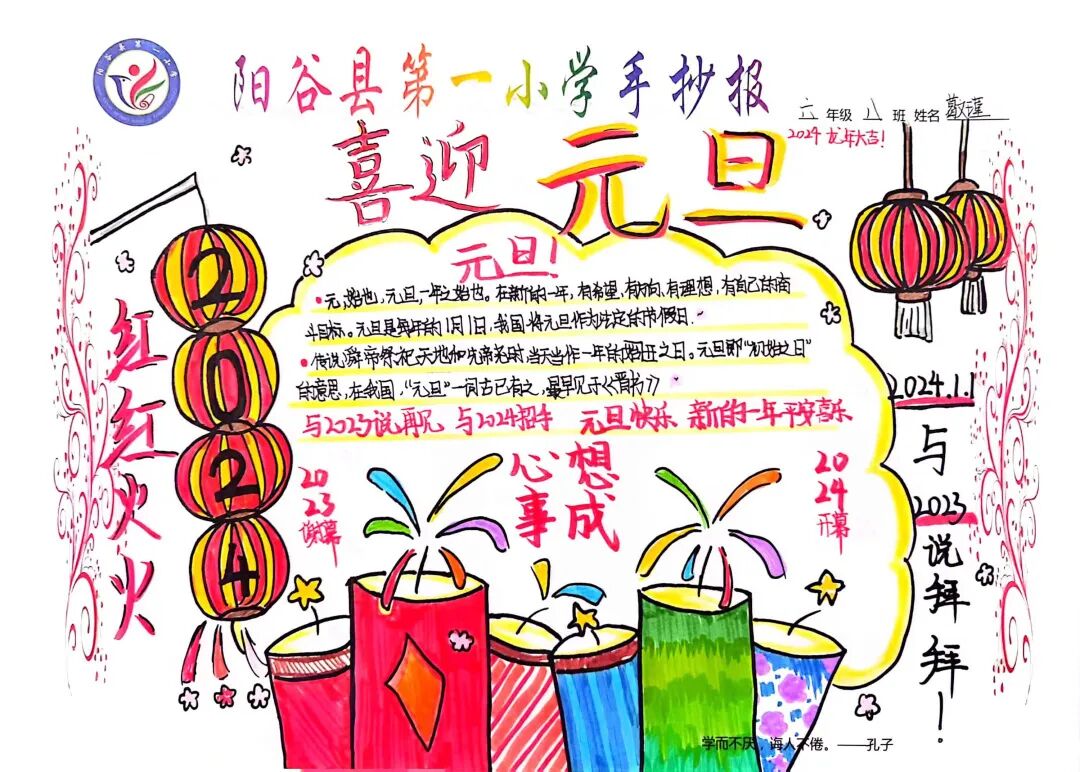 阳谷县第一小学
阳谷县第一小学手抄报
六年级 八班 姓名
2024 龙年大吉!
喜迎 元旦
元旦!
• 元,始也,元旦,一年之始也。在新的一年,有希望,有方向,有理想,有自己的奋
斗目标。元旦是每年的1月1日,我国将元旦作为法定的节假日.
• 传说舜帝祭祀天地和先帝尧时,当天当作一年的开始之日。元旦即“初始之日”
的意思,在我国,“元旦”一词古已有之,最早见于《晋书》
与2023说再见 与2024招手 元旦快乐 新的一年平安喜乐
心想
事成
2023谢幕
2024开幕
2024
红红火火
2024.1.1
与
2023
说拜拜!
学而不厌,诲人不倦。——孔子